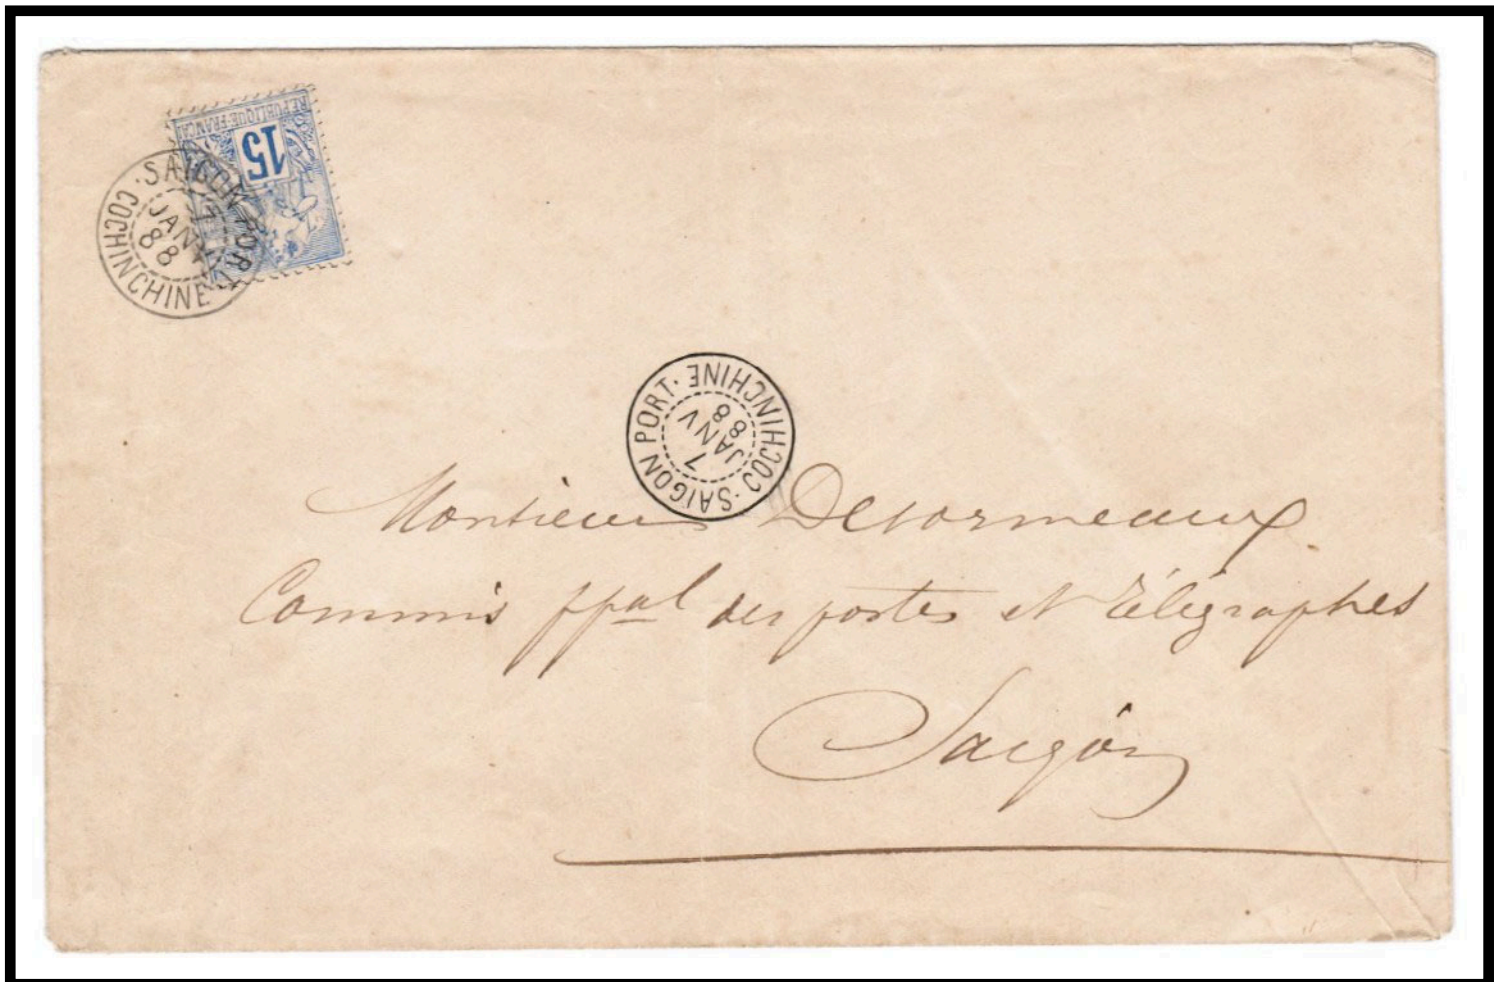 REPUBLIQUE FRANCA
15
SAIGON PORT
7
JANV
88
COCHINCHINE
SAIGON PORT
7
JANV
88
COCHINCHINE
Monsieur Desormeaux
Commis ppal des postes et Télégraphes
Saigon